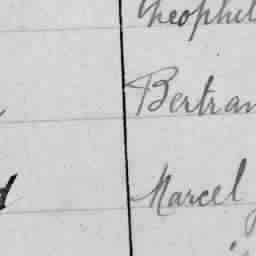 Theophil
Bertran
Marcel